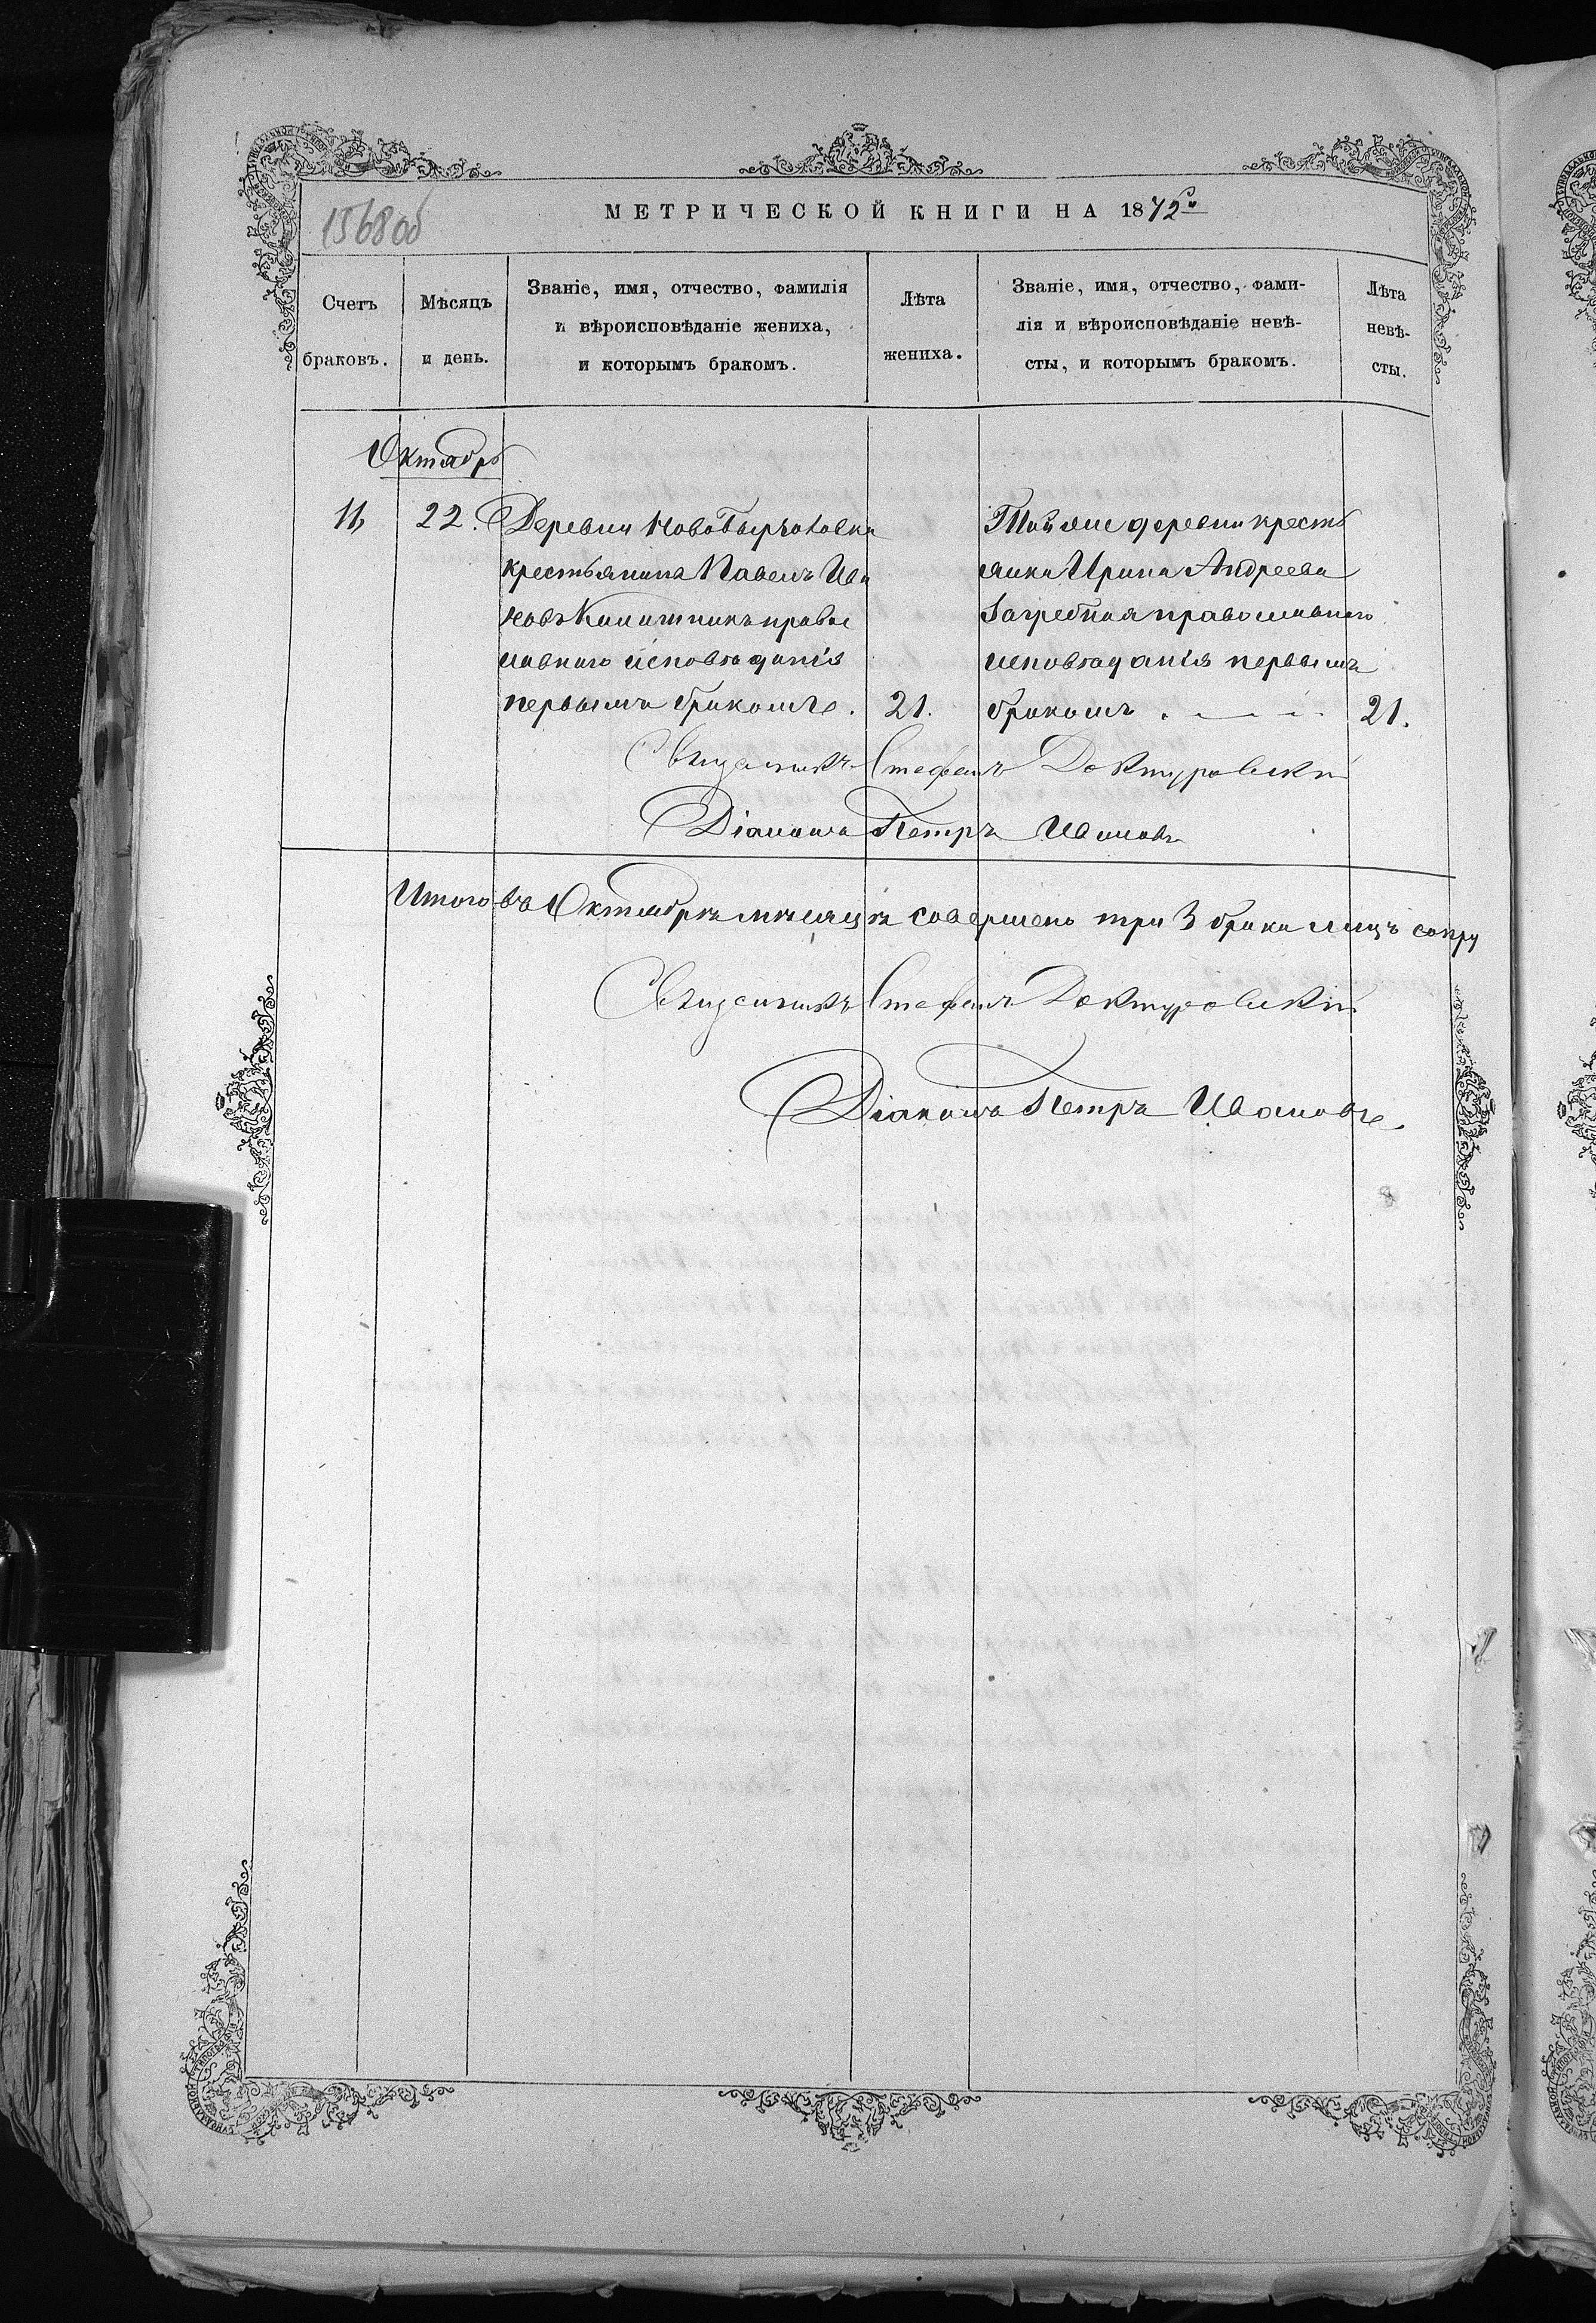 1568об
МЕТРИЧЕСКОЙ КНИГИ НА 1872й
Счетъ браковъ.
Мѣсяцъ и день.
Званіе, имя, отчество, фамилія
и вѣроисповѣданіе жениха,
и которымъ бракомъ.
Лѣта
жениха.
Званіе, имя, отчество, фами-
лія и вѣроисповѣданіе невѣ-
сты, и которымъ бракомъ.
Лѣта
невѣ-
сты.
Октябрь
11, 22. Деревни
крестьянинъ Павелъ Ива
новъ Калашникъ правос
лавнаго исповѣданія
первымъ бракомъ. 21.
Той же деревни кресть
янка Ирина Андреева
Загребная православнаго
исповѣданія первымъ
бракомъ. 21.
Священникъ Стефанъ Доктуровскій
Діаконъ Петръ Ивановъ
Итого въ Октябрѣ мѣсяцѣ совершено три 3 брака лицъ сопру
Священникъ Стефанъ Доктуровскій
Діаконъ Петръ Ивановъ.